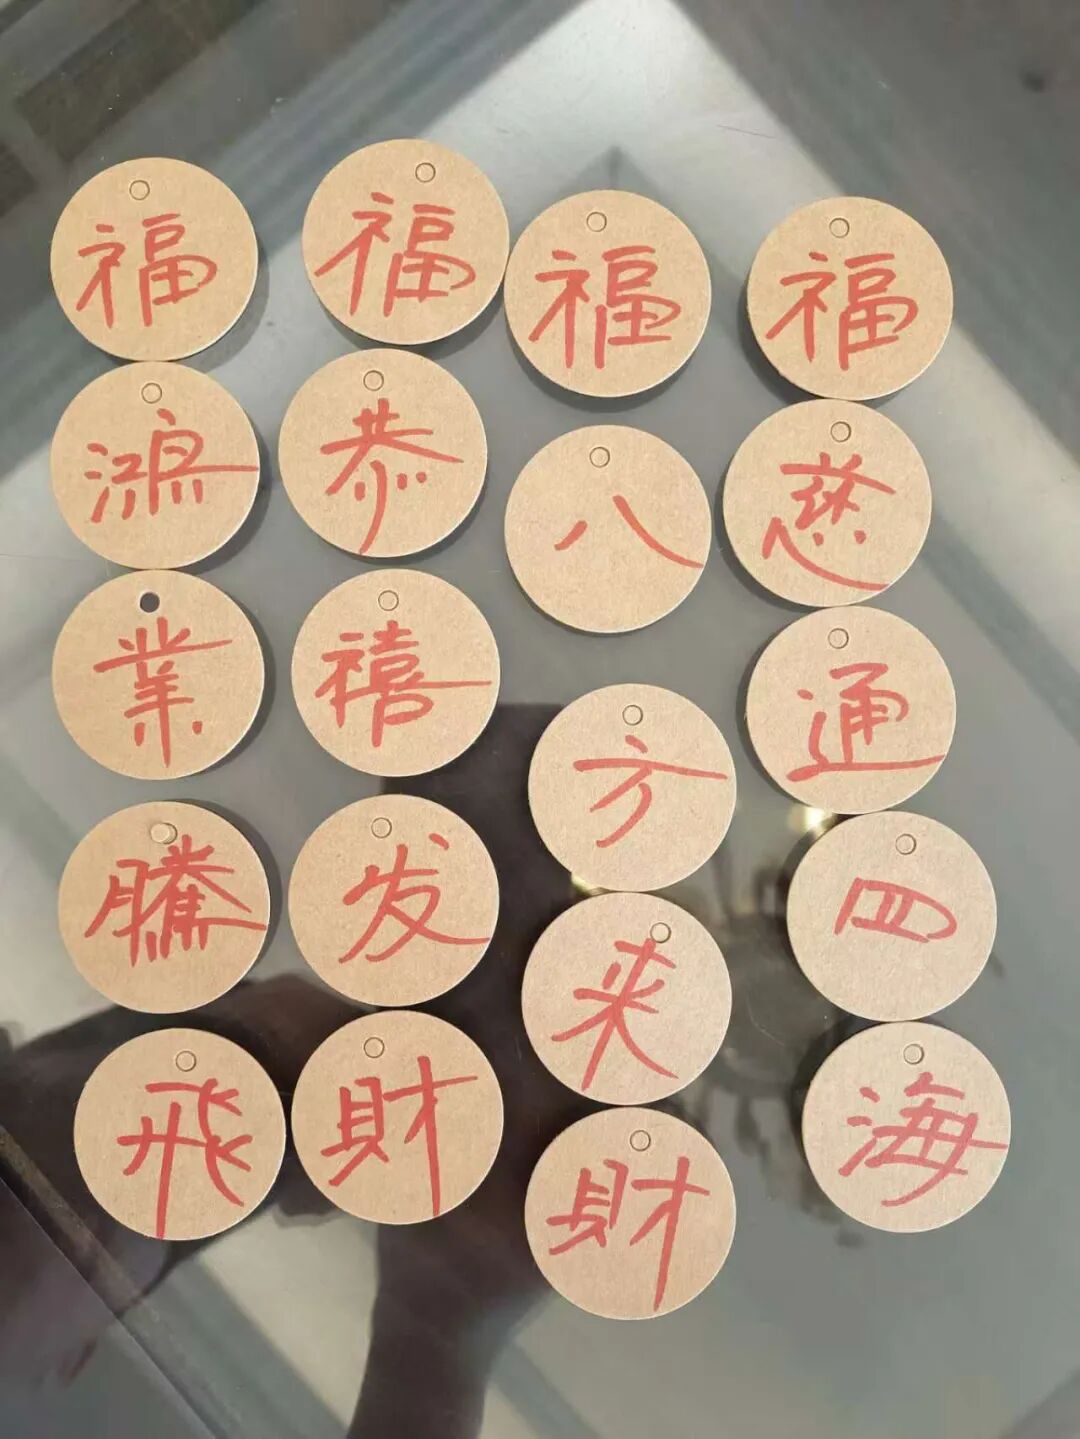 福鴻業騰飛
福恭禧发財
福八方来財
福慈通四海